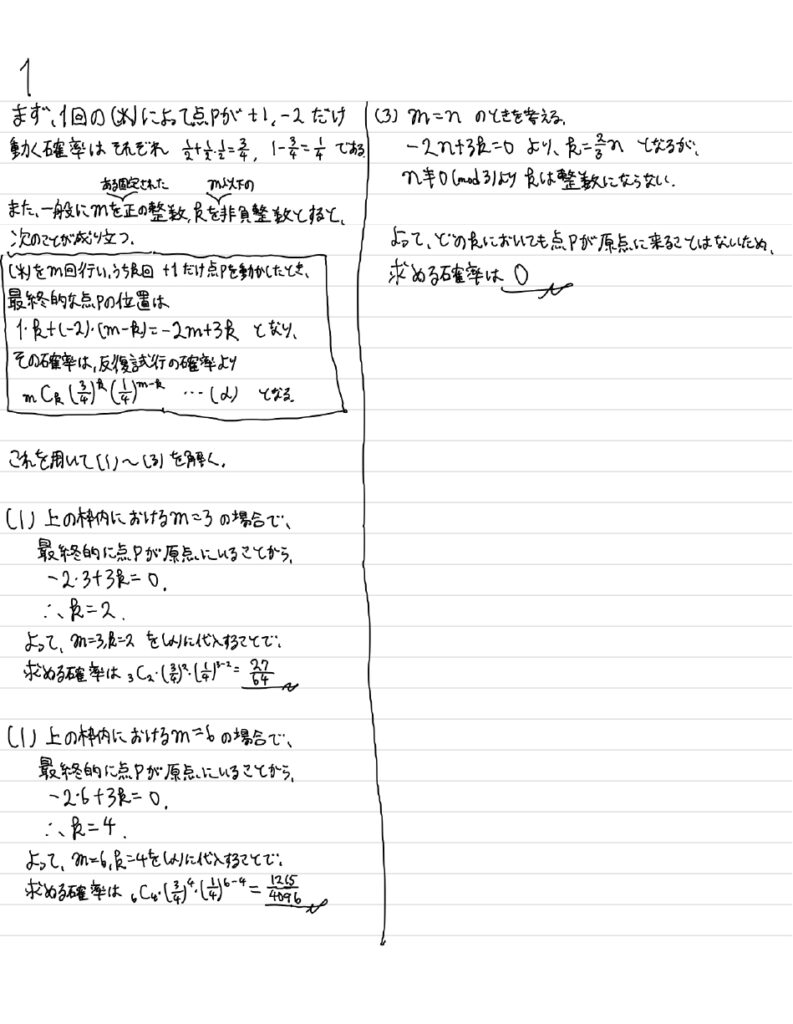 1
まず、1回の(※)によって点Pが +1, -2 だけ
動く確率は それぞれ 1/2+1/2・1/2=3/4, 1-3/4=1/4 である
ある固定された m以下の
また、一般にmを正の整数, kを非負整数とすると、
次のことが成り立つ.
(※)をm回行い、うちk回 +1だけ点Pを動かしたとき、
最終的な点Pの位置は
1・k+(-2)・(m-k)=-2m+3k となり、
その確率は、反復試行の確率より
mCk (3/4)^k (1/4)^(m-k) …(α) となる
これを用いて(1)～(3)を解く.
(1) 上の枠内における m=3 の場合で、
最終的に点Pが原点にいることから、
-2・3+3k=0.
∴ k=2.
よって、m=3, k=2 を(α)に代入することで、
求める確率は 3C2・(3/4)^2・(1/4)^(3-2)=27/64
(1) 上の枠内における m=6 の場合で、
最終的に点Pが原点にいることから、
-2・6+3k=0.
∴ k=4.
よって、m=6, k=4を(α)に代入することで、
求める確率は 6C4・(3/4)^4・(1/4)^(6-4)=1215/4096
(3) m=n のときを考える.
-2n+3k=0 より、k=2/3 n となるが、
n≢0(mod3)より kは整数にならない.
よって、どのkにおいても点Pが原点に来ることはないため、
求める確率は 0